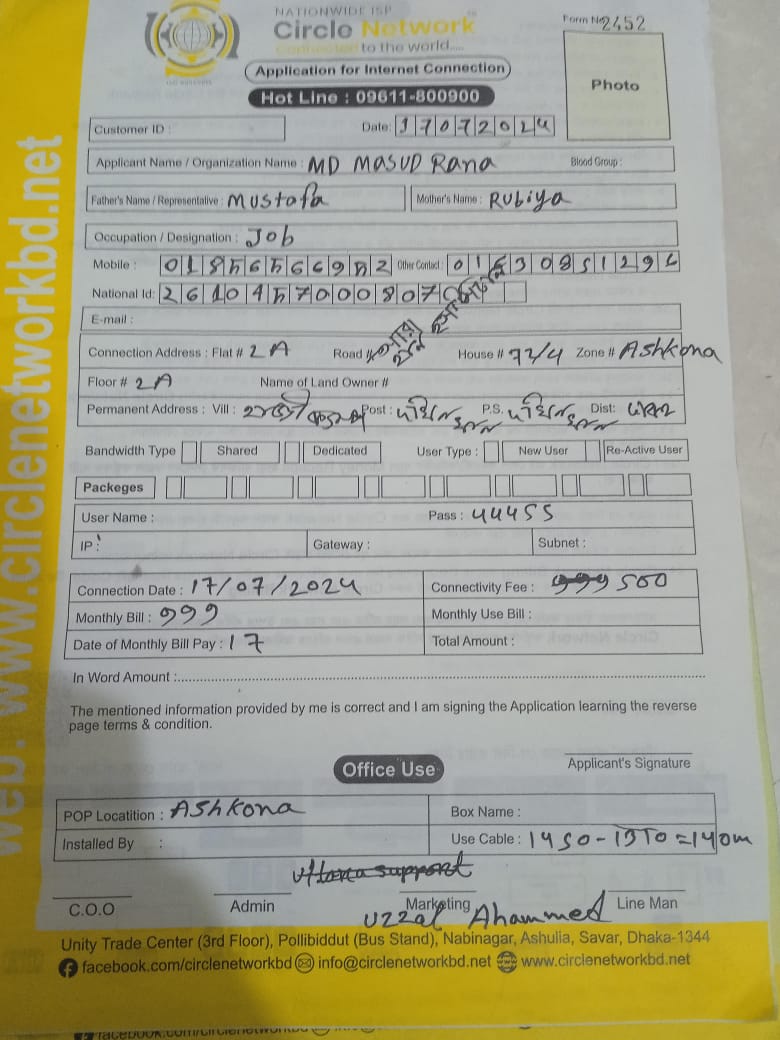 NATIONWIDE ISP
Circle Network
Connected to the world.....
Form No 2452
Application for Internet Connection
Hot Line : 09611-800900
Photo
Customer ID :
Date: 17072024
Applicant Name / Organization Name : MD MASUD Rana Blood Group :
Father's Name / Representative : Mustofa Mother's Name : Rubiya
Occupation / Designation : Job
Mobile : Other Contact :
National Id:
E-mail :
Connection Address : Flat # 2A Road # House # 72/4 Zone # Ashkona
Floor # 2A Name of Land Owner #
Permanent Address : Vill : Post : P.S. Dist:
Bandwidth Type Shared Dedicated User Type : New User Re-Active User
Packeges
User Name : Pass : 44455
IP : Gateway : Subnet :
Connection Date : 17/07/2024 Connectivity Fee : 999 500
Monthly Bill : 999 Monthly Use Bill :
Date of Monthly Bill Pay : 17 Total Amount :
In Word Amount :
The mentioned information provided by me is correct and I am signing the Application learning the reverse
page terms & condition.
Applicant's Signature
Office Use
POP Locatition : Ashkona Box Name :
Installed By : Use Cable : 1450-1310=140m
Uttara support
C.O.O Admin Marketing Line Man
Uzzal Ahammed
Unity Trade Center (3rd Floor), Pollibiddut (Bus Stand), Nabinagar, Ashulia, Savar, Dhaka-1344
facebook.com/circlenetworkbd info@circlenetworkbd.net www.circlenetworkbd.net
web: www.circlenetworkbd.net